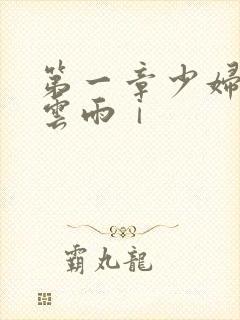 第一章少婦
雲雨｜
霸丸龍